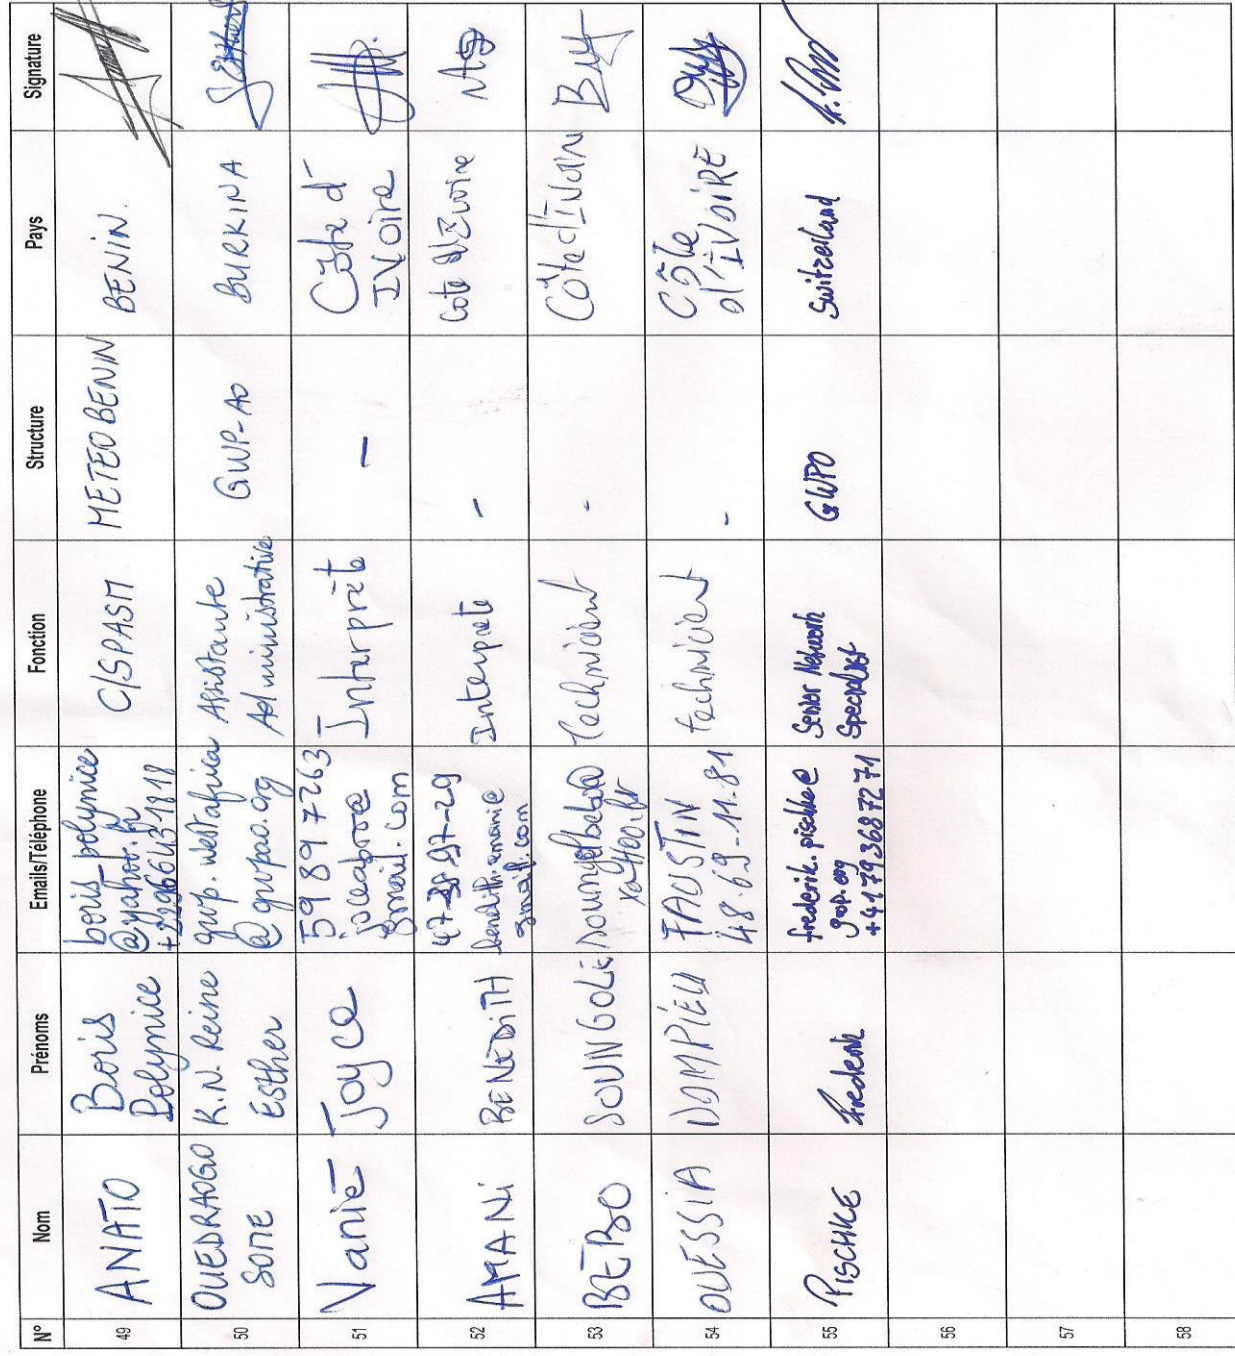 N° Nom Prénoms Emails/Téléphone Fonction Structure Pays Signature
49 ANATO Boris Polynice boris_polynice @yahoo.fr +22966431818 C/SPASM METEO BENIN BENIN.
50 OUEDRAOGO SOME K.N. Reine Esther gwp.westafrica @gwpao.org Assistante Administrative GWP-AO BURKINA
51 Vanié Joyce 59897263 @ gmail.com Interprète - Côte d' IVoire
52 AMANI BENEDITH 47-38-97-29 benedith.amani@ gmail.com Interprete - Cote d'Ivoire
53 BÉBO SOUNGOLE Technicien - Côte d'Ivoire
54 OUESSIA DOMPIEU FAUSTIN 48-69-11-81 technicien - Côte d'IVOIRE
55 PISCHKE Frederik frederik.pischke@ gwp.org +41793687271 Senior Network Specialist GWPO Switzerland
56
57
58